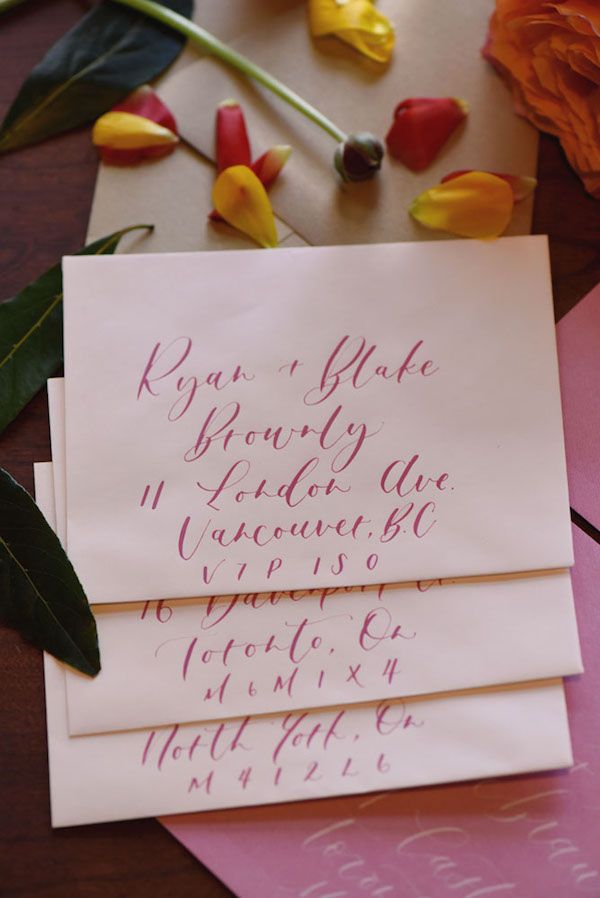 Ryan + Blake
Brownly
11 London Ave.
Vancouver, B.C
V7P 1S0
16 Davenport
Toronto, On
M6M 1X4
North York, On
M41 2L6